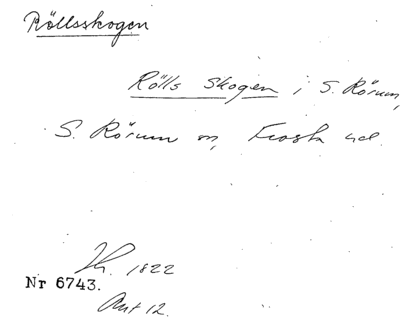 Röllsskogen
Rölls Skogen i S. Rörum,
S. Rörum sn, Frosta hd.
1822
Nr 6743.
Akt 12.